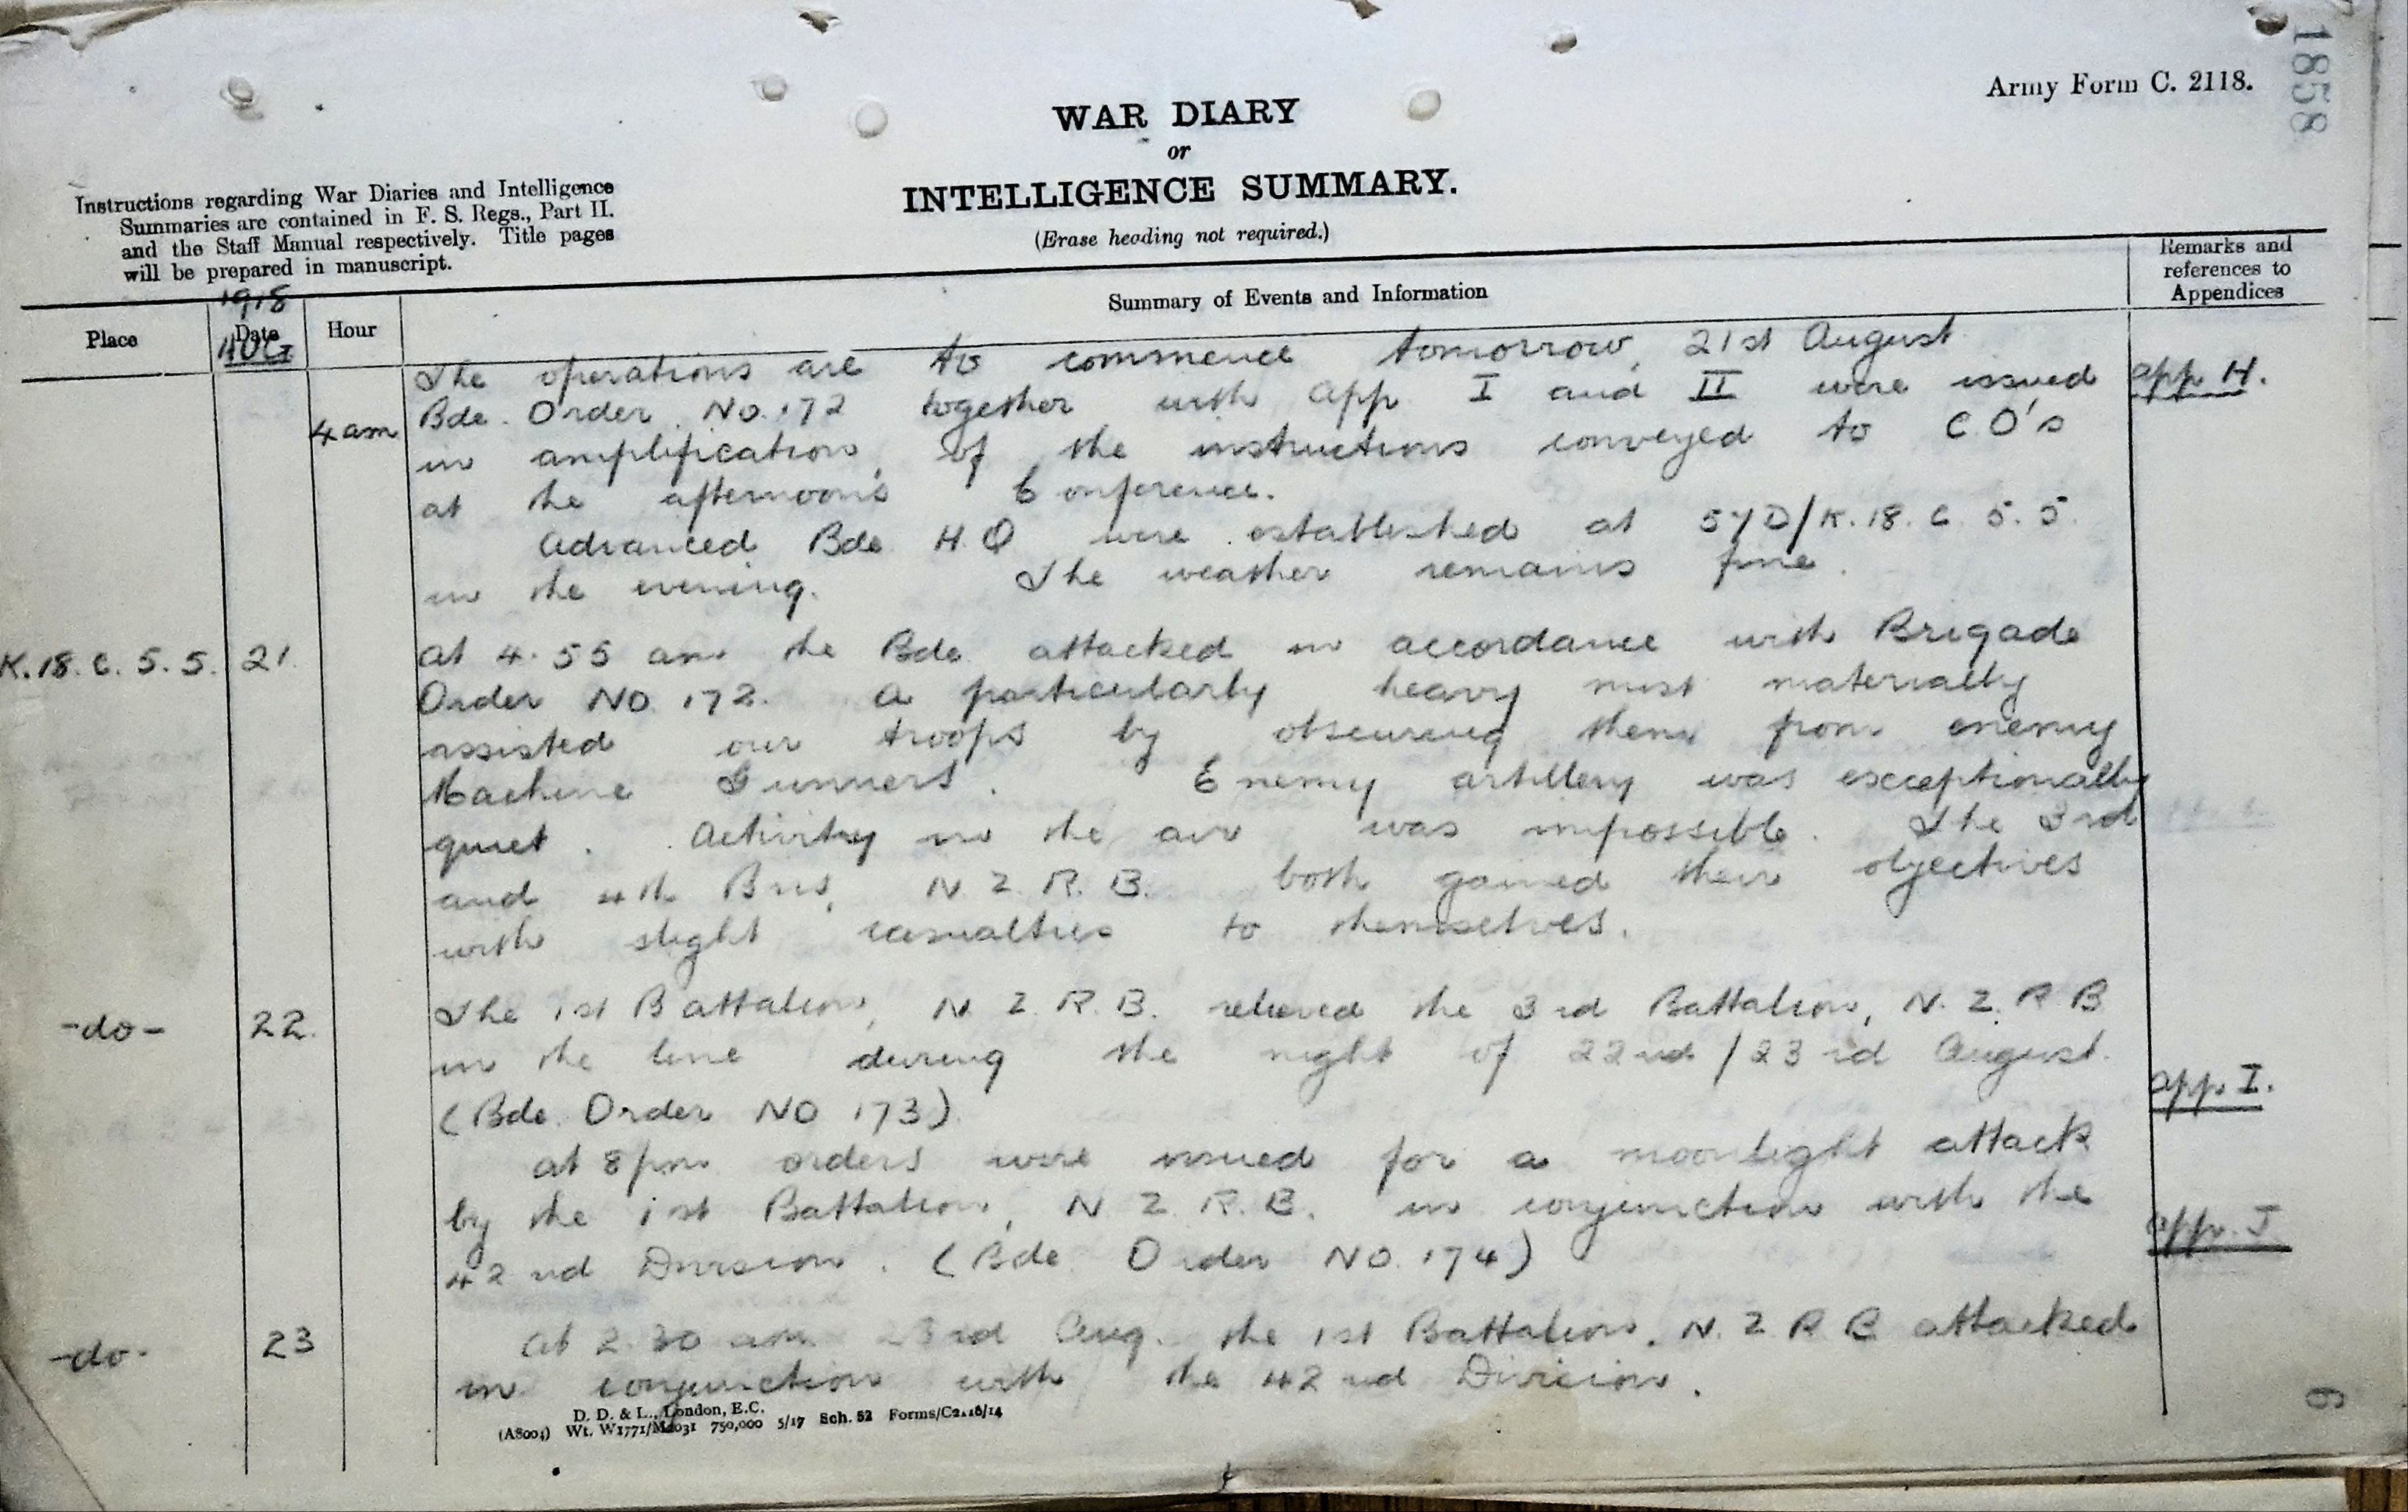 1858
Army Form C. 2118.
WAR DIARY
or
INTELLIGENCE SUMMARY.
(Erase heading not required.)
Instructions regarding War Diaries and Intelligence
Summaries are contained in F. S. Regs., Part II.
and the Staff Manual respectively. Title pages
will be prepared in manuscript.
Place
1918
Date
AUG
Hour
Summary of Events and Information
Remarks and
references to
Appendices
The operations are to commence tomorrow, 21st August
4 am Bde. Order No. 172 together with App I and II were issued App H.
in amplification of the instructions conveyed to C.O's
at the afternoon's Conference.
Advanced Bde H.Q were established at 57D/K.18.c 5.5.
in the evening. The weather remains fine.
K.18.c.5.5. 21. At 4.55 am the Bde attacked in accordance with Brigade
Order No 172. A particularly heavy mist materially
assisted our troops by obscuring them from enemy
Machine Gunners. Enemy artillery was exceptionally
quiet. Activity in the air was impossible. The 3rd
and 4th Bns, N Z. R. B. both gained their objectives
with slight casualties to themselves.
-do- 22. The 1st Battalion, N. Z. R. B. relieved the 3rd Battalion, N. Z. R B
in the line during the night of 22nd/23rd August.
(Bde. Order NO 173) App. I.
At 8 pm orders were issued for a moonlight attack
by the 1st Battalion, N Z. R. B. in conjunction with the
42nd Division. (Bde Order NO. 174) App. J
-do- 23 At 2.30 am 23rd Aug. the 1st Battalion, N. Z R B attacked
in conjunction with the 42nd Division.
D. D. & L., London, E.C.
(A8004) Wt. W1771/M2031 750,000 5/17 Sch. 52 Forms/C2118/14